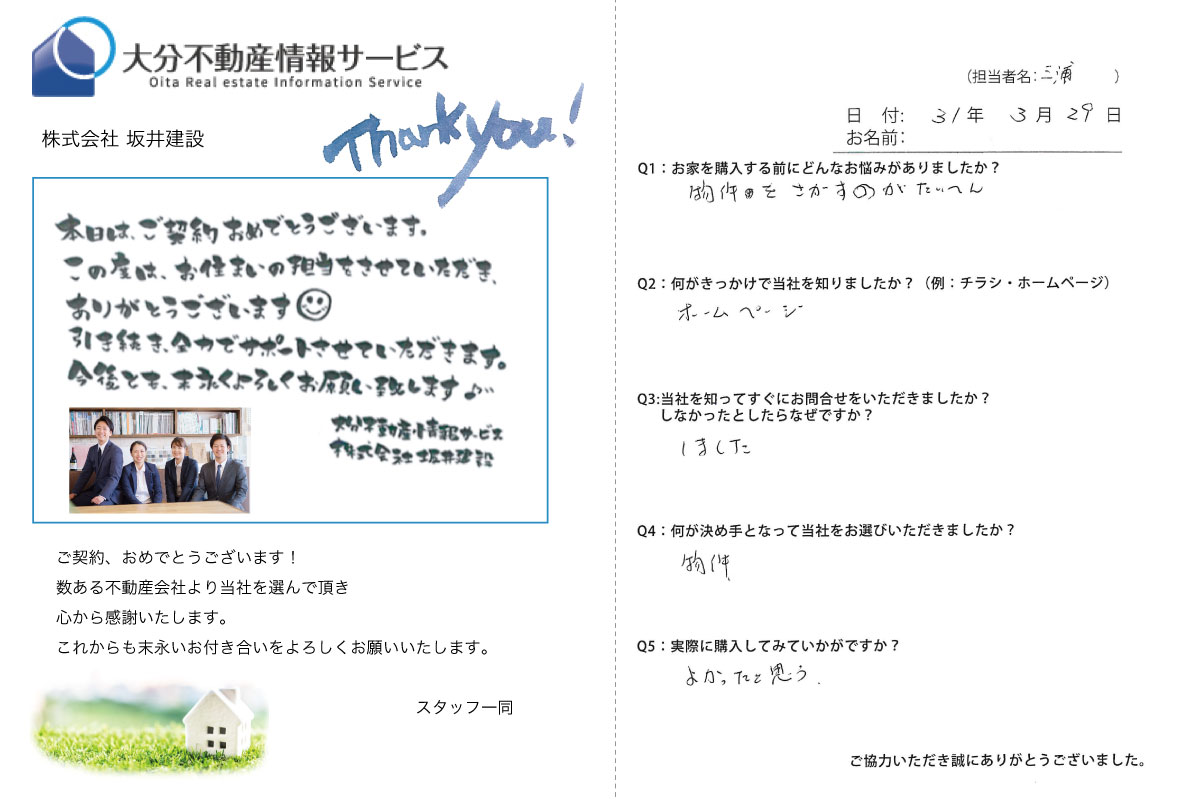 大分不動産情報サービス
Oita Real estate Information Service
株式会社 坂井建設
Thank you!
本日は、ご契約おめでとうございます。
この度は、お住まいの担当をさせていただき、
ありがとうございます
引き続き、全力でサポートさせていただきます。
今後とも、末永くよろしくお願い致します♪
大分不動産情報サービス
株式会社 坂井建設
ご契約、おめでとうございます！
数ある不動産会社より当社を選んで頂き
心から感謝いたします。
これからも末永いお付き合いをよろしくお願いいたします。
スタッフ一同
（担当者名：三浦　　）
日　付：　31年　3月29日
お名前：
Q1：お家を購入する前にどんなお悩みがありましたか？
物件をさがすのがたいへん
Q2：何がきっかけで当社を知りましたか？（例：チラシ・ホームページ）
ホームページ
Q3:当社を知ってすぐにお問合せをいただきましたか？
しなかったとしたらなぜですか？
しました
Q4：何が決め手となって当社をお選びいただきましたか？
物件
Q5：実際に購入してみていかがですか？
よかったと思う.
ご協力いただき誠にありがとうございました。